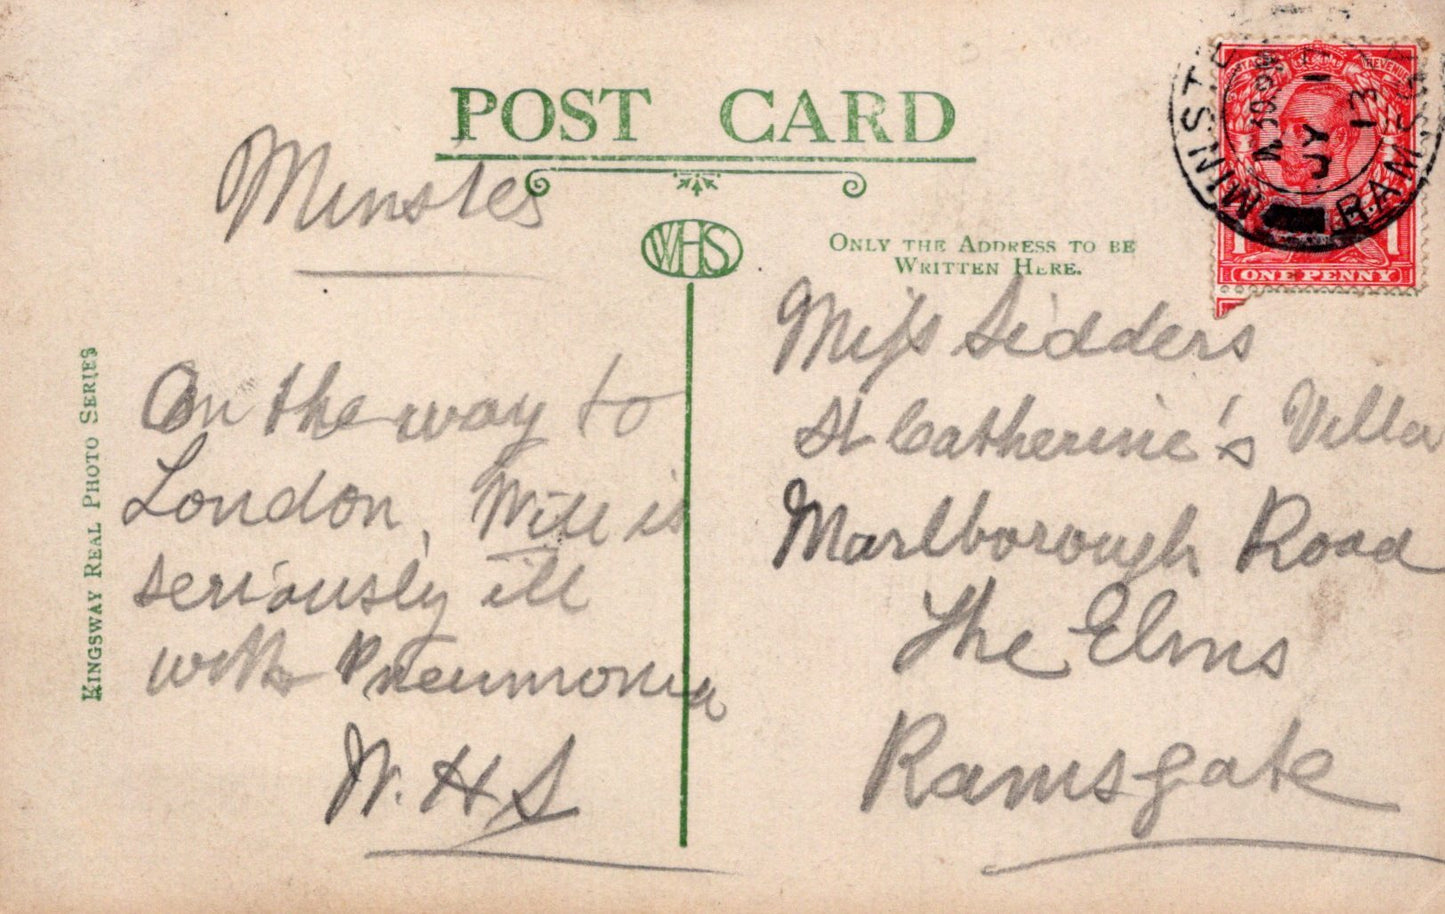 POST CARD
WHS
ONLY THE ADDRESS TO BE
WRITTEN HERE.
KINGSWAY REAL PHOTO SERIES
Minster
On the way to
London, Will is
seriously ill
with Pneumonia
W. H S
Miss Sidders
St Catherine's Villa
Marlborough Road
The Elms
Ramsgate
MINSTE
RAMSGAT
JY 1
13
POSTAGE REVENUE
1 1
ONE PENNY